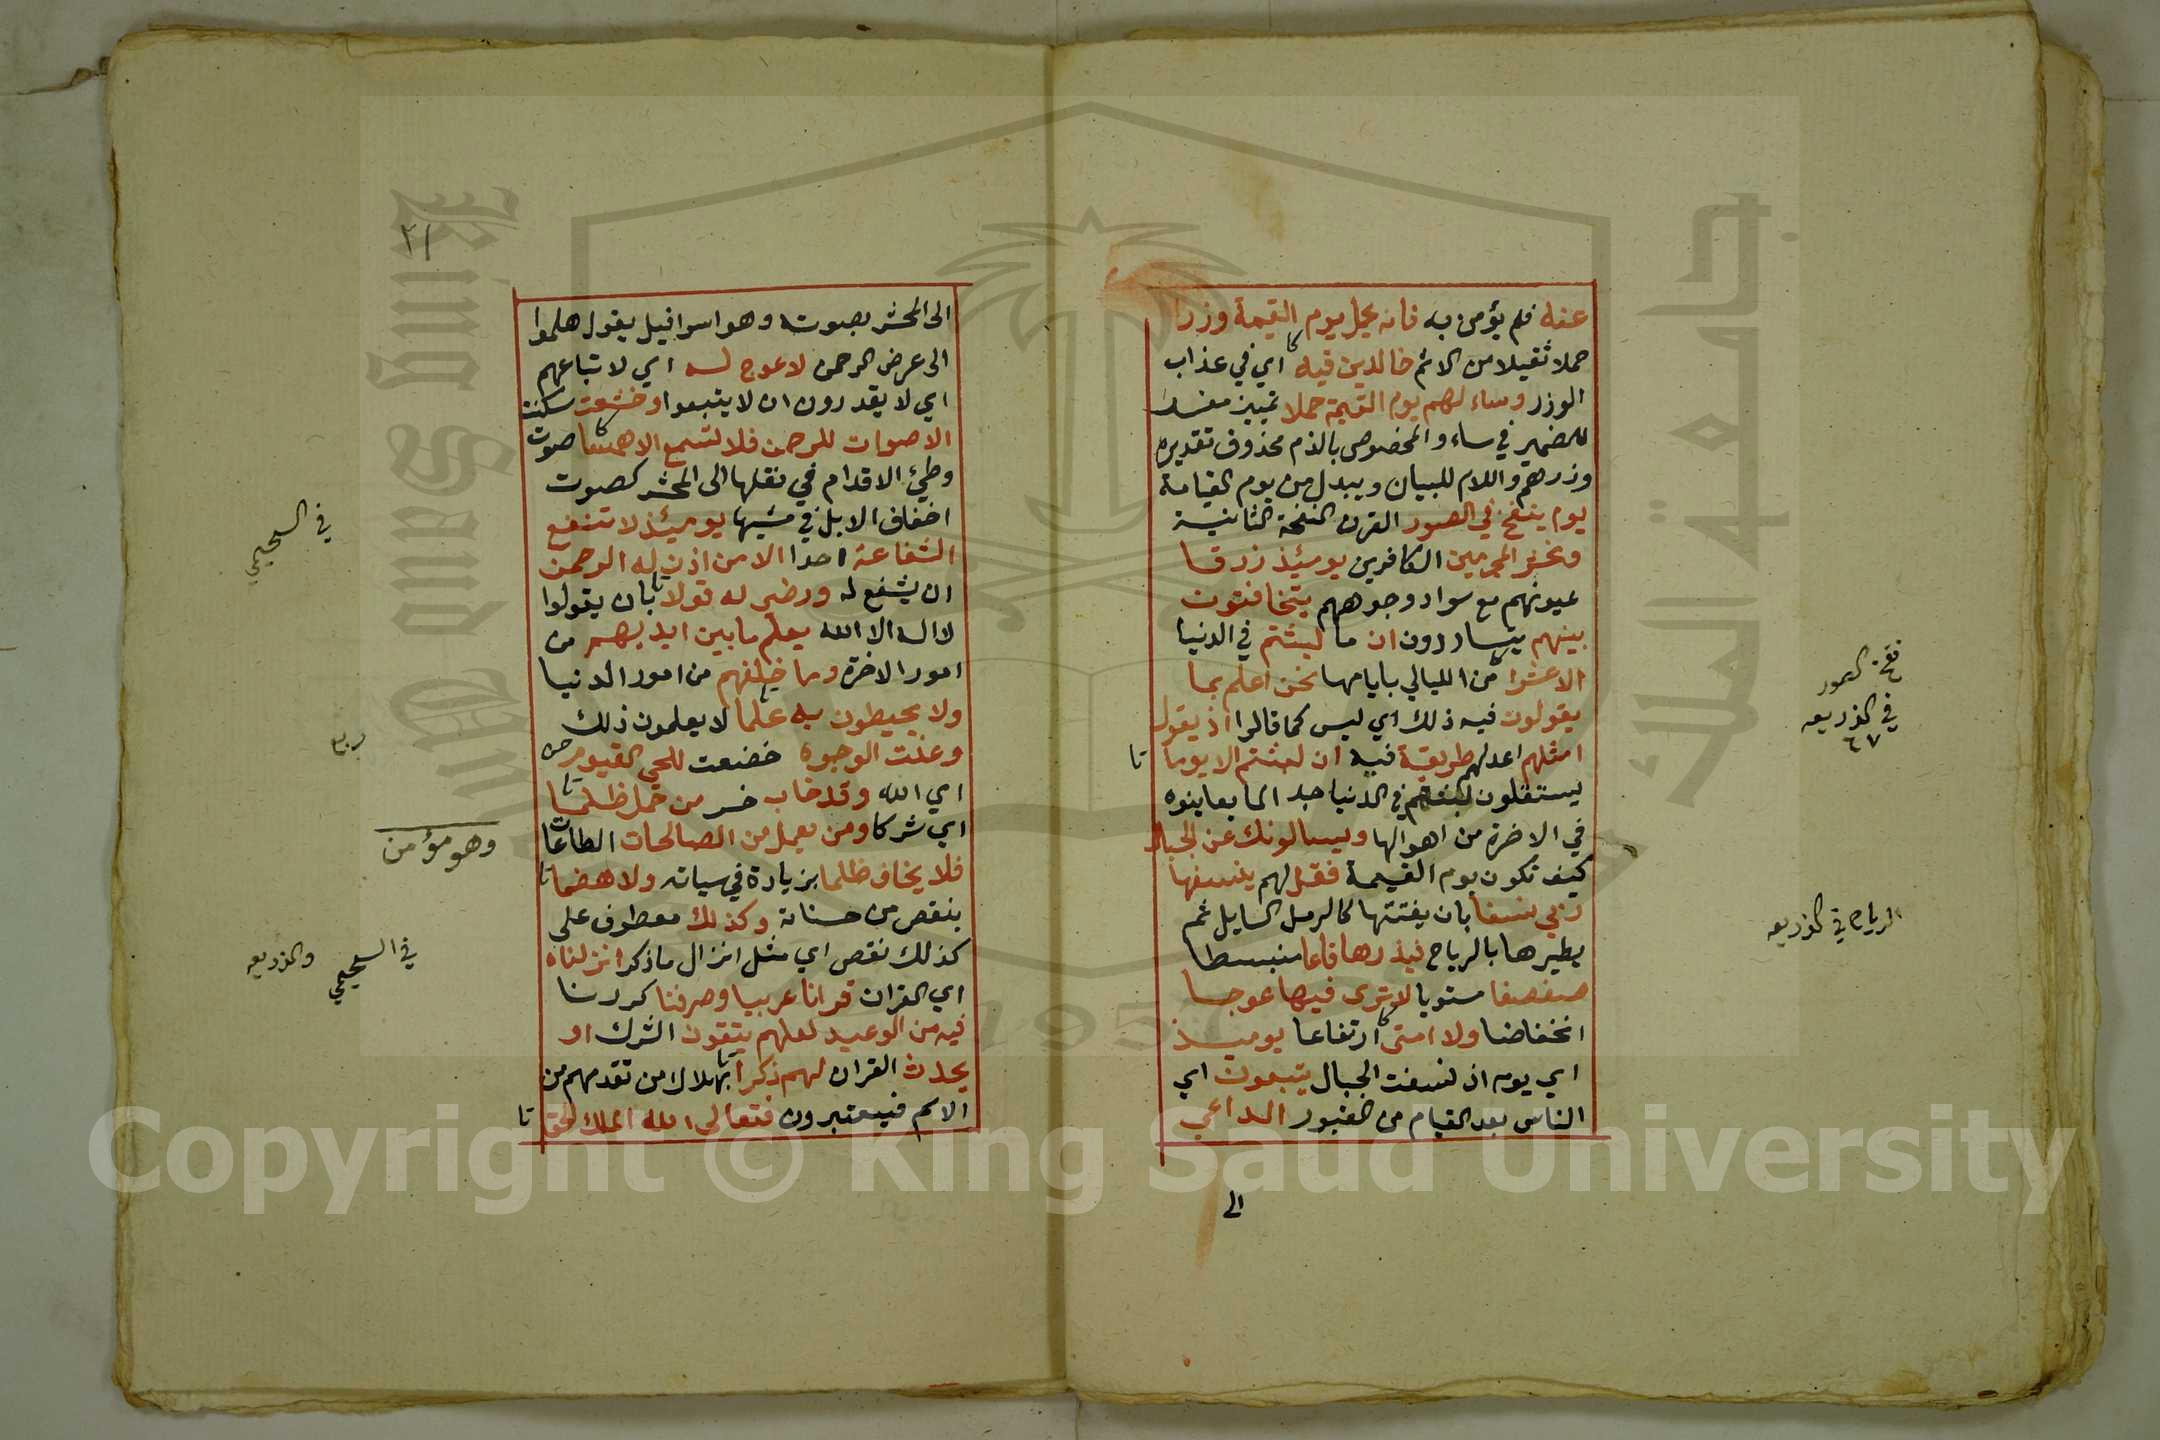 عنه فلم يؤمن به فانه يحمل يوم القيمة وزرا
حملا ثقيلا من الاثم خالدين فيه اي في عذاب
الوزر وساء لهم يوم القيمة حملا تمييز مفسر
للضمير في ساء والمخصوص بالذم محذوف تقديره
وزرهم واللام للبيان ويبدل من يوم القيامة
يوم ينفخ في الصور القرن النفخة الثانية
ونحشر المجرمين الكافرين يومئذ زرقا
عيونهم مع سواد وجوههم يتخافتون
بينهم يتساررون ان ما لبثتم في الدنيا
الا عشرا من الليالي بايامها نحن اعلم بما
يقولون فيه ذلك اي ليس كما قالوا اذ يقول
امثلهم اعدلهم طريقة فيه ان لبثتم الا يوما
يستقلون لبثهم في الدنيا جدا لما يعاينوه
في الاخرة من اهوالها ويسالونك عن الجبال
كيف تكون يوم القيمة فقل لهم ينسفها
ربي نسفا بان يفتتها كالرمل السايل ثم
يطيرها بالرياح فيذرها قاعا منبسطا
صفصفا مستويا لا ترى فيها عوجا
انخفاضا ولا امتى ارتفاعا يوميذ
اي يوم اذ نسفت الجبال يتبعون اي
الناس بعد القيام من القبور الداعي
الى
في الذريعه
٦٧
الرياح في الذريعه
٢١
الى المحشر بصوته وهو اسرافيل يقول هلموا
الى عرض الرحمن لا عوج له اي لاتباعهم
اي لا يقدرون ان لا يتبعوا وخشعت سكنت
الاصوات للرحمن فلا تسمع الا همسا صوت
وطئ الاقدام في نقلها الى المحشر كصوت
اخفاف الابل في مشيها يوميئذ لا تنفع
الشفاعة احدا الا من اذن له الرحمن
ان يشفع له ورضي له قولا بان يقولوا
لا اله الا الله يعلم ما بين ايديهم من
امور الاخرة وما خلفهم من امور الدنيا
ولا يحيطون به علما لا يعلمون ذلك
وعنت الوجوه خضعت للحي القيوم
اي الله وقد خاب خسر من حمل ظلما
اي شركا ومن يعمل من الصالحات الطاعات
فلا يخاف ظلما بزيادة في سياته ولا هضما
بنقص من حسناته وكذلك معطوف على
كذلك نقص اي مثل انزال ما ذكر انزلناه
اي القران قرانا عربيا وصرفنا كررنا
فيه من الوعيد لعلهم يتقون الشرك او
يحدث القران لهم ذكرا بهلاك من تقدمهم من
الامم فيعتبرون فتعالى الله الملك الحق
في السحيمي
وهو مؤمن
في السحيمي والذريعه
King Saud University
جامعة الملك
1957
Copyright © King Saud University